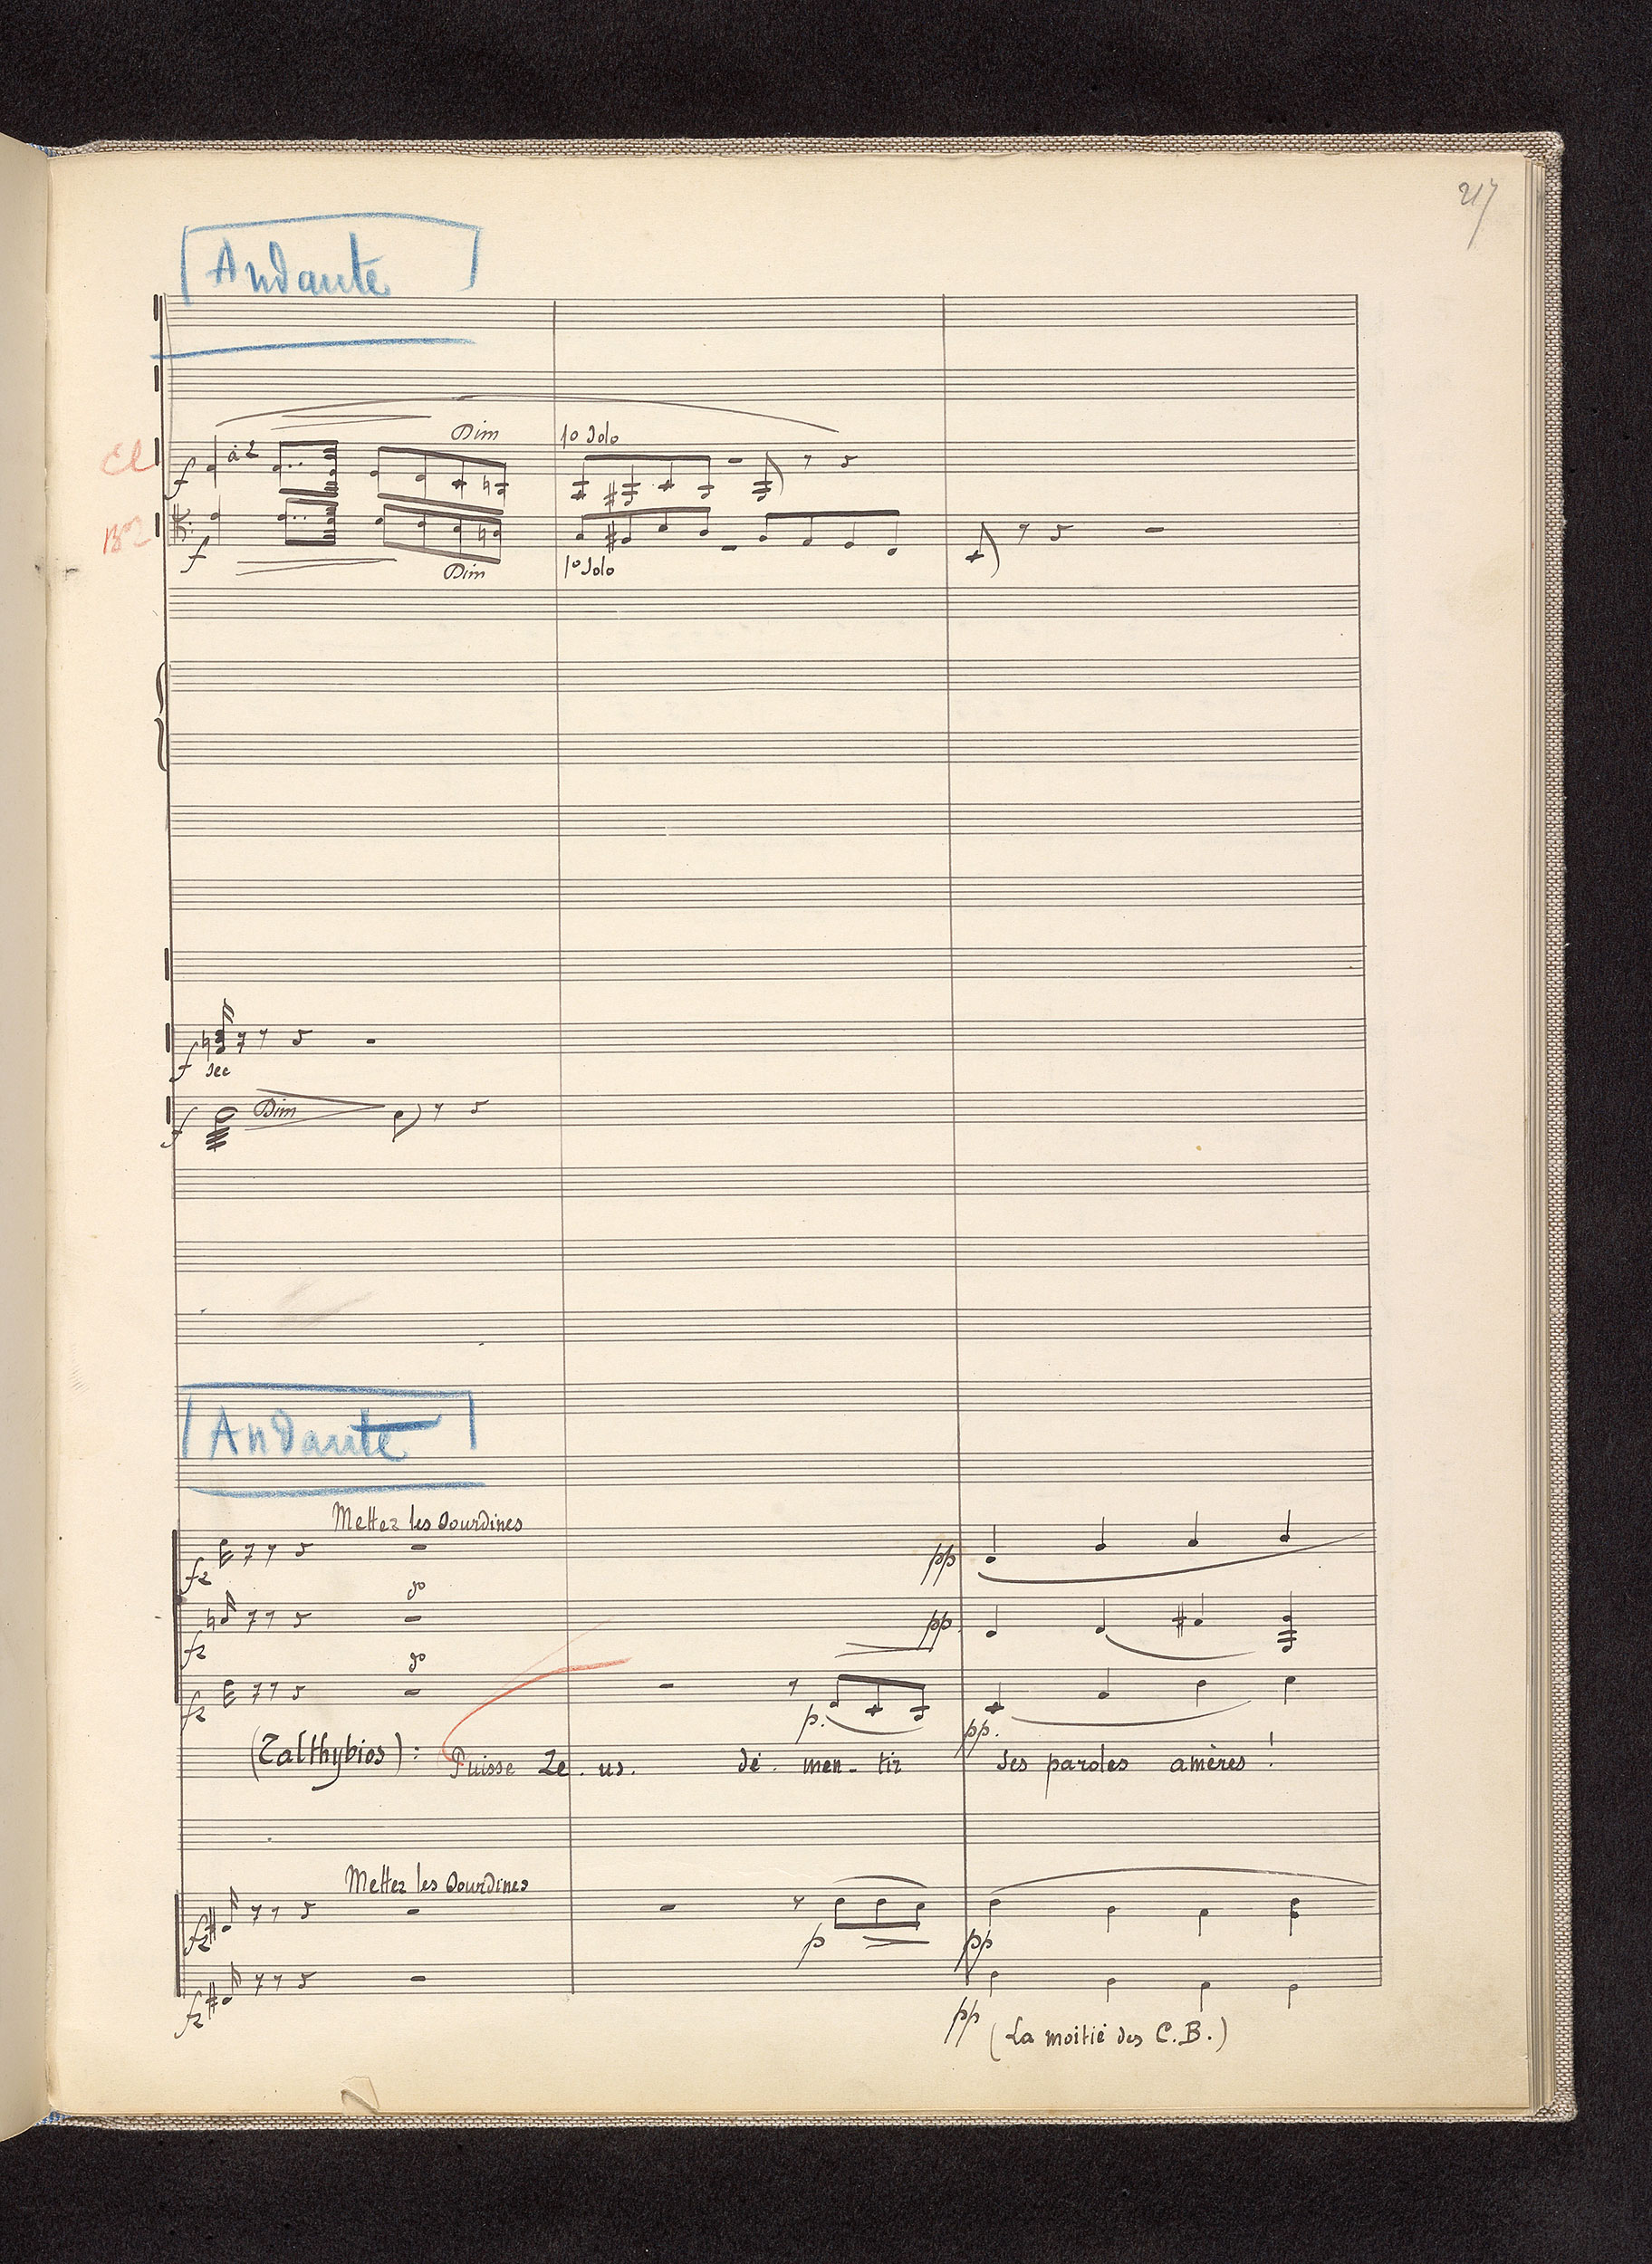 217
Andante
Dim
1o Solo
Cl
à 2
f
Bon
f
Dim
1o Solo
f
sec
f
Dim
Andante
Mettez les Sourdines
fz
pp
do
fz
pp
do
fz
p.
pp.
(Talthybios) : Puisse Ze - us. dé - men - tir ses paroles amères !
Mettez les Sourdines
fz
p
pp
fz
pp
(La moitié des C.B.)